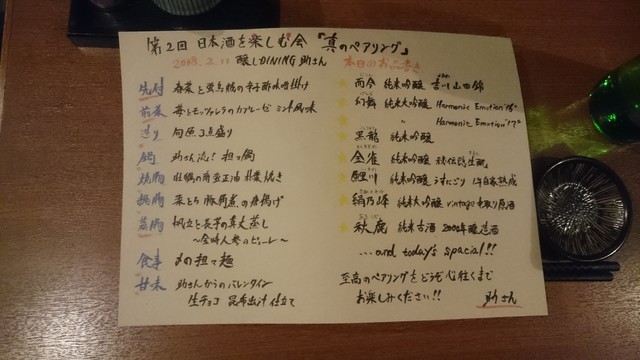 第2回 日本酒を楽しむ会 『真のペアリング』
2018.2.11 醸しDINING 助さん
本日のお品書き
先付 春菜と蛍烏賊の辛子酢味噌掛け
前菜 苺とモッツァレラのカプレーゼ ミント風味
造り 旬魚3点盛り
鍋 助さん流! 担々鍋
焼物 牡蠣の南蛮正油 朴葉焼き
揚物 菜とら豚角煮の唐揚げ
蒸物 帆立と長芋の真丈蒸し
～金時人参のピューレ～
食事 〆の担々麺
甘味 助さんからのバレンタイン
生チョコ 昆布出汁仕立て
而今 純米吟醸 吉川山田錦
幻舞 純米大吟醸 Harmonic Emotion '16
〃 Harmonic Emotion '17
黒龍 純米吟醸
金雀 純米吟醸 秘伝隠生酛
鯉川 純米吟醸 うすにごり 1年自家熟成
絹乃峰 純米大吟醸 vintage 中取り原酒
秋鹿 純米古酒 2000年醸造酒
...and today's spacial!!
至高のペアリングをどうぞ心往くまで
お楽しみください!!
助さん